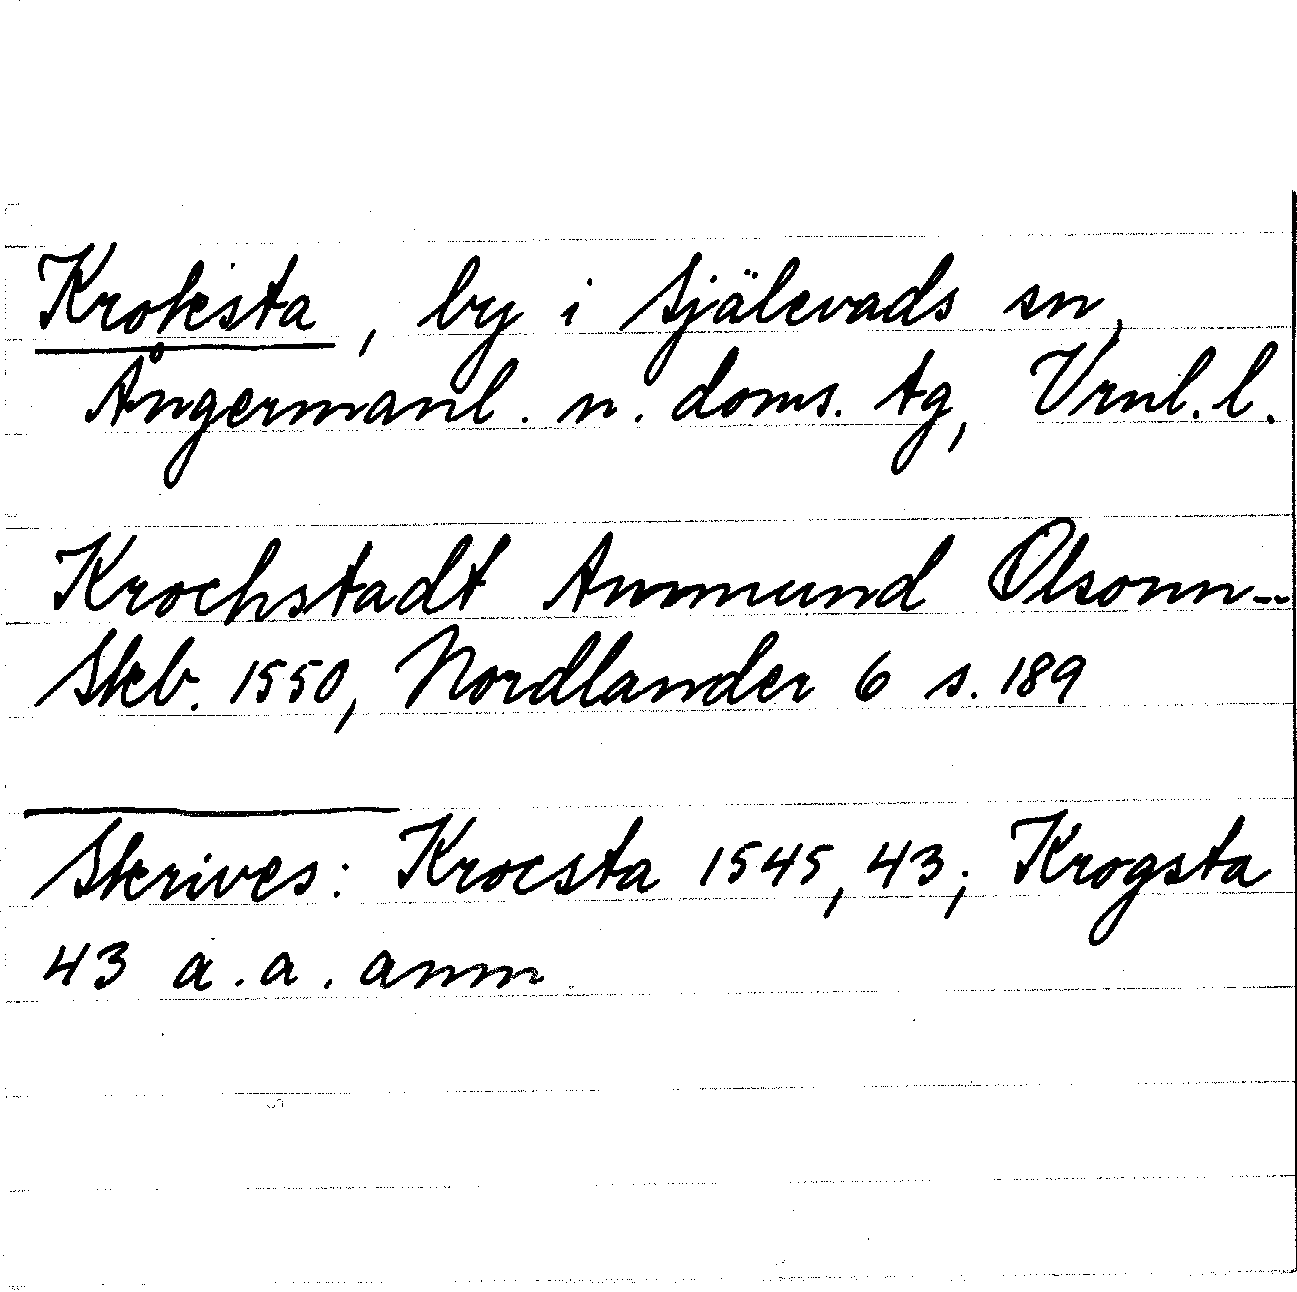 Kroksta, by i Själevads sn,
Ångermanl. n. doms. tg, Vrnl. l.
Krochstadt Ammund Olsonn --
Skb. 1550, Nordlander 6 s. 189
Skrives: Krocsta 1545, 43; Krogsta
43 a. a. anm